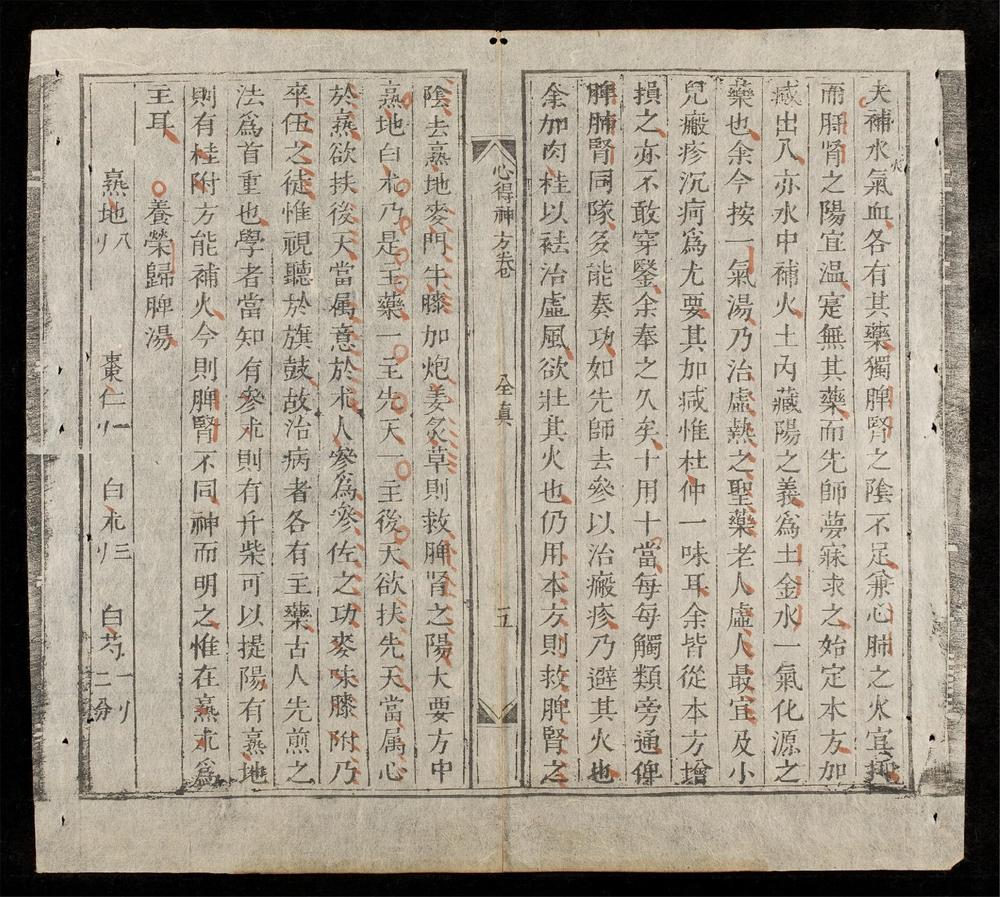 夫補水氣血各有其藥獨脾腎之陰不足兼心肺之火宜抑
火
而脾腎之陽宜温寔無其藥而先師夢寐求之始定本方加
减出入亦水中補火土內藏陽之義爲土金水一氣化源之
藥也余今按一氣湯乃治虛熱之聖藥老人虛人最宜及小
兒癍疹沉疴爲尤要其加减惟杜仲一味耳余皆從本方增
損之亦不敢穿鑿余奉之久矣十用十當每每觸類旁通俾
脾肺腎同隊多能奏功如先師去參以治癍疹乃避其火也
余加肉桂以祛治虛風欲壯其火也仍用本方則救脾腎之
心得神方卷 全真 五
陰去熟地麥門牛膝加炮姜炙草則救脾腎之陽大要方中
熟地白朮乃是主藥一主先天一主後天欲扶先天當属心
於熟欲扶後天當属意於朮人參爲參佐之功麥味膝附乃
卒伍之徒惟視聽於旗鼓故治病者各有主藥古人先煎之
法爲首重也學者當知有參朮則有升柴可以提陽有熟地
則有桂附方能補火今則脾腎不同神而明之惟在熟朮爲
主耳 養榮歸脾湯
熟地八刂 棗仁一刂 白朮三刂 白芍一刂二分